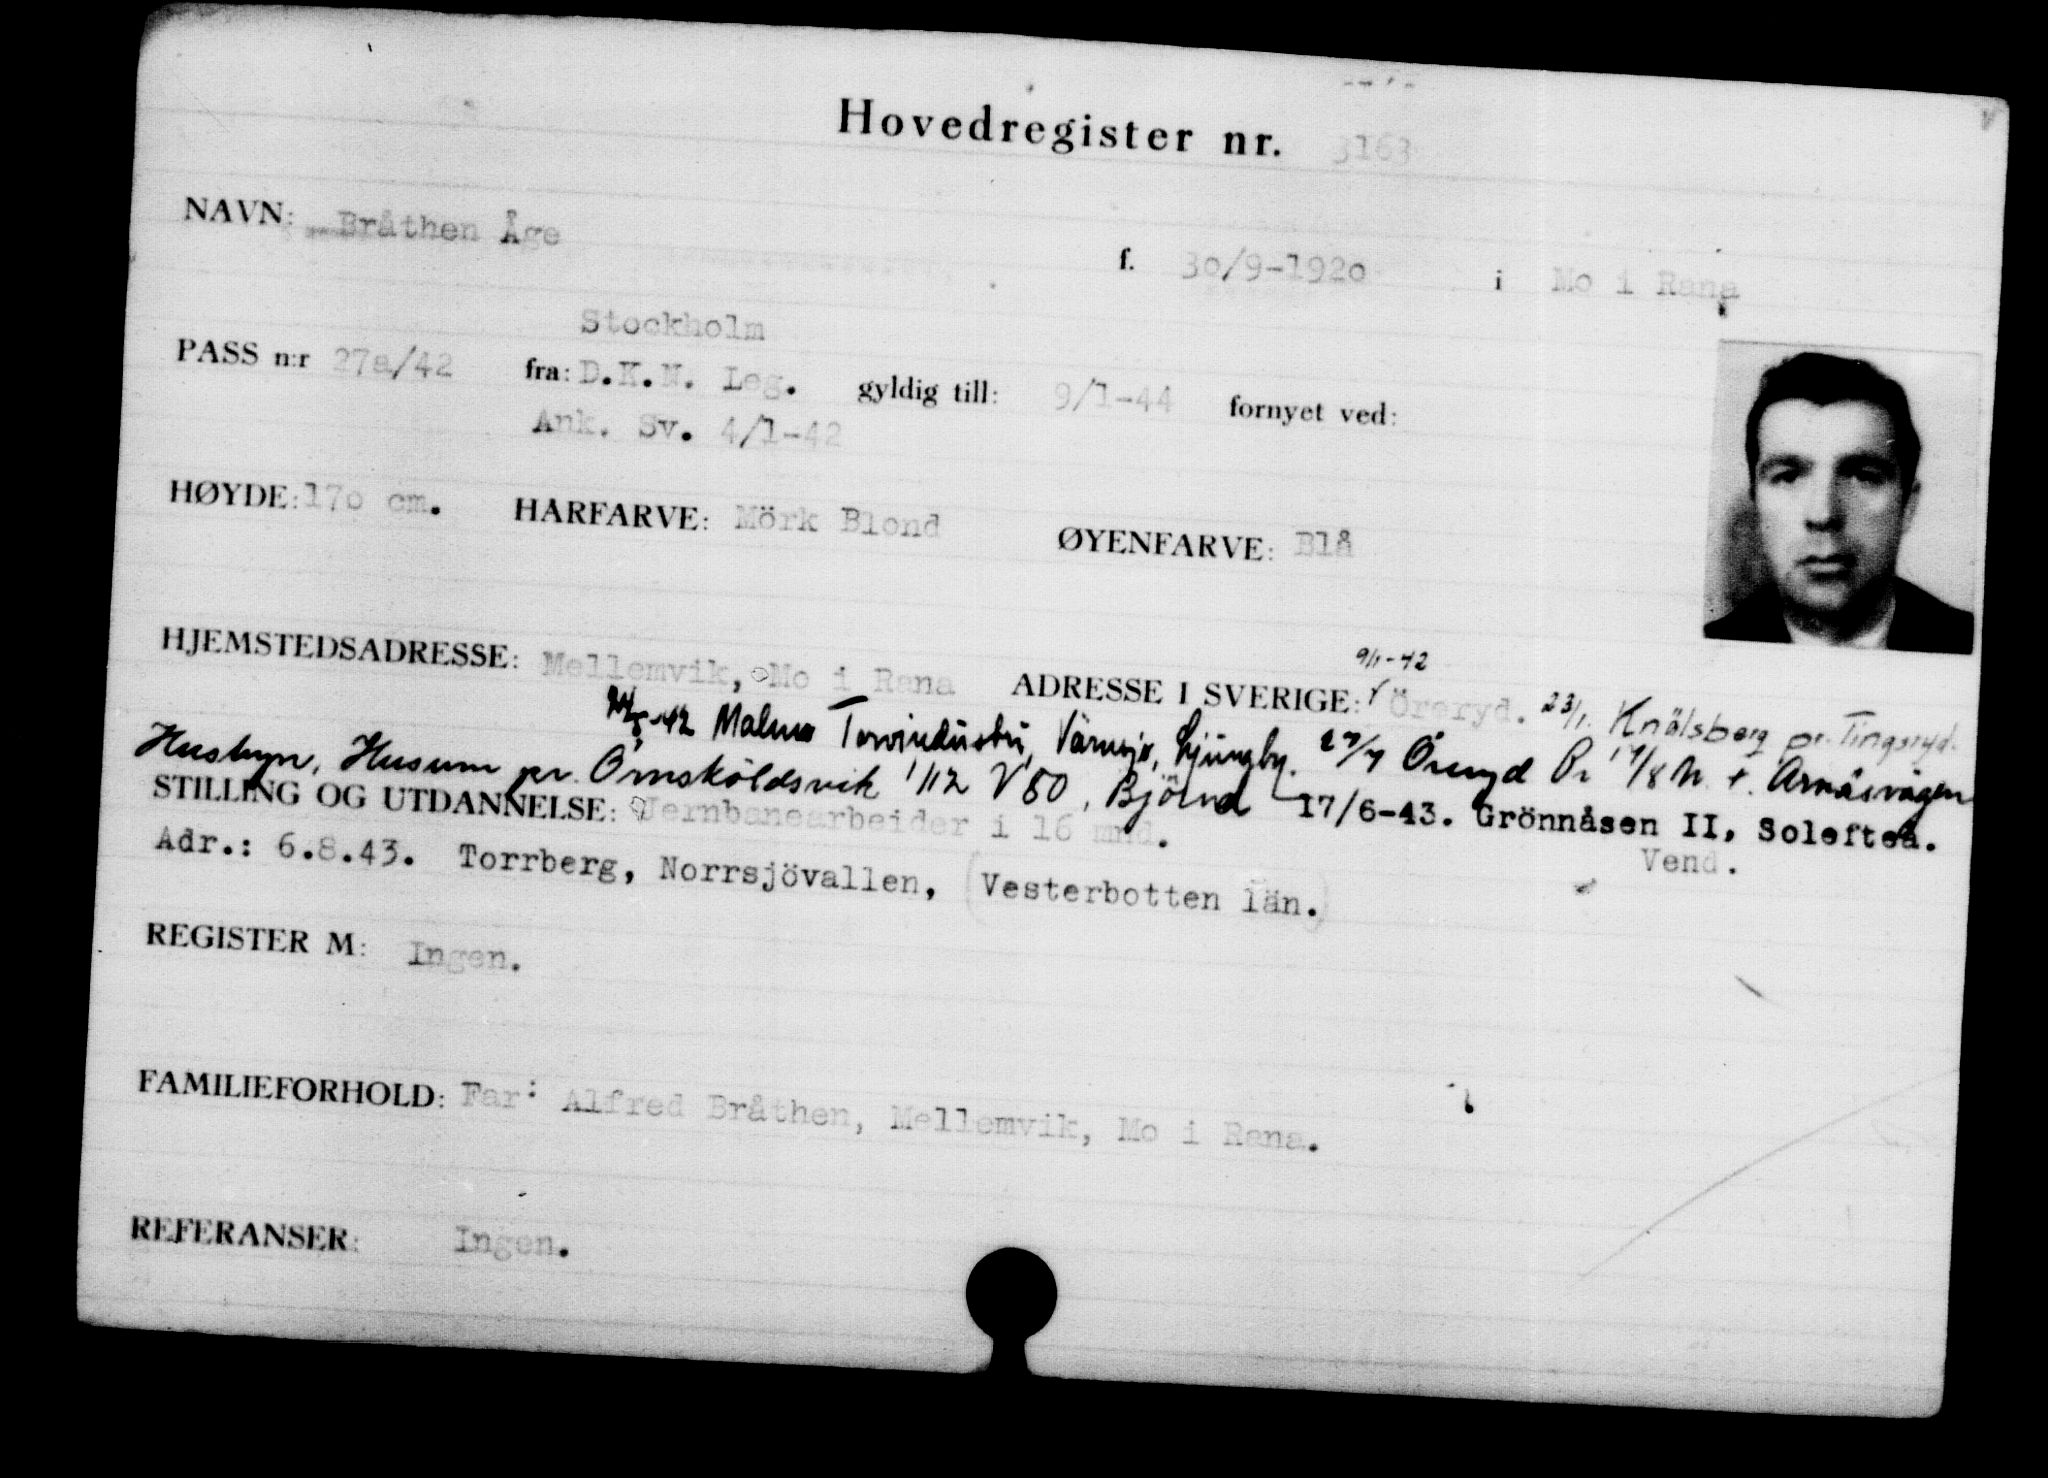 Hovedregister nr. 3163
NAVN: Bråthen Åge f. 30/9-1920 i Mo i Rana
Stockholm
PASS n:r 27a/42 fra: D.K.N. Leg. gyldig till: 9/1-44 fornyet ved:
Ank. Sv. 4/1-42
HØYDE: 170 cm. HARFARVE: Mörk Blond ØYENFARVE: Blå
9/1-42
HJEMSTEDSADRESSE: Mellemvik, Mo i Rana ADRESSE I SVERIGE: Öreryd. 23/1. Knälsberg pr. Tingsryd.
Malmö Torvindustri, Värnsjö, Ljungby. 27/7 Öreryd Pr 14/8 N. t. Arnäsvägen
Husbyn, Husum pr. Örnsköldsvik 1/12 V 80, Björna 17/6-43. Grönnåsen II, Solefteå.
STILLING OG UTDANNELSE: Jernbanearbeider i 16 mnd. Vend.
Adr.: 6.8.43. Torrberg, Norrsjövallen, (Vesterbotten län.)
REGISTER M: Ingen.
FAMILIEFORHOLD: Far: Alfred Bråthen, Mellemvik, Mo i Rana.
REFERANSER: Ingen.